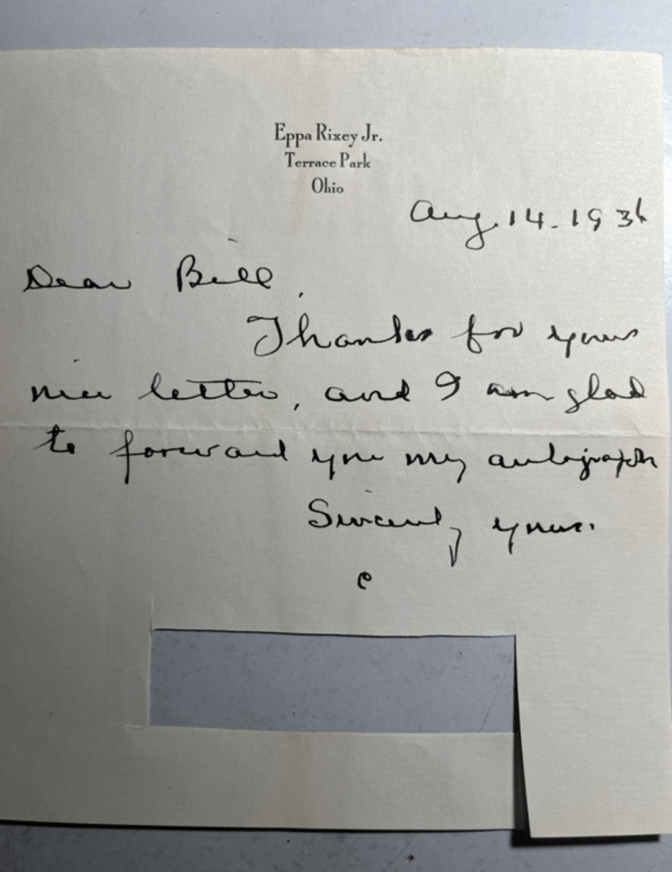 Eppa Rixey Jr.
Terrace Park
Ohio
Aug. 14. 1936
Dear Bill,
Thanks for your
nice letter, and I am glad
to forward you my autograph
Sincerely yours.